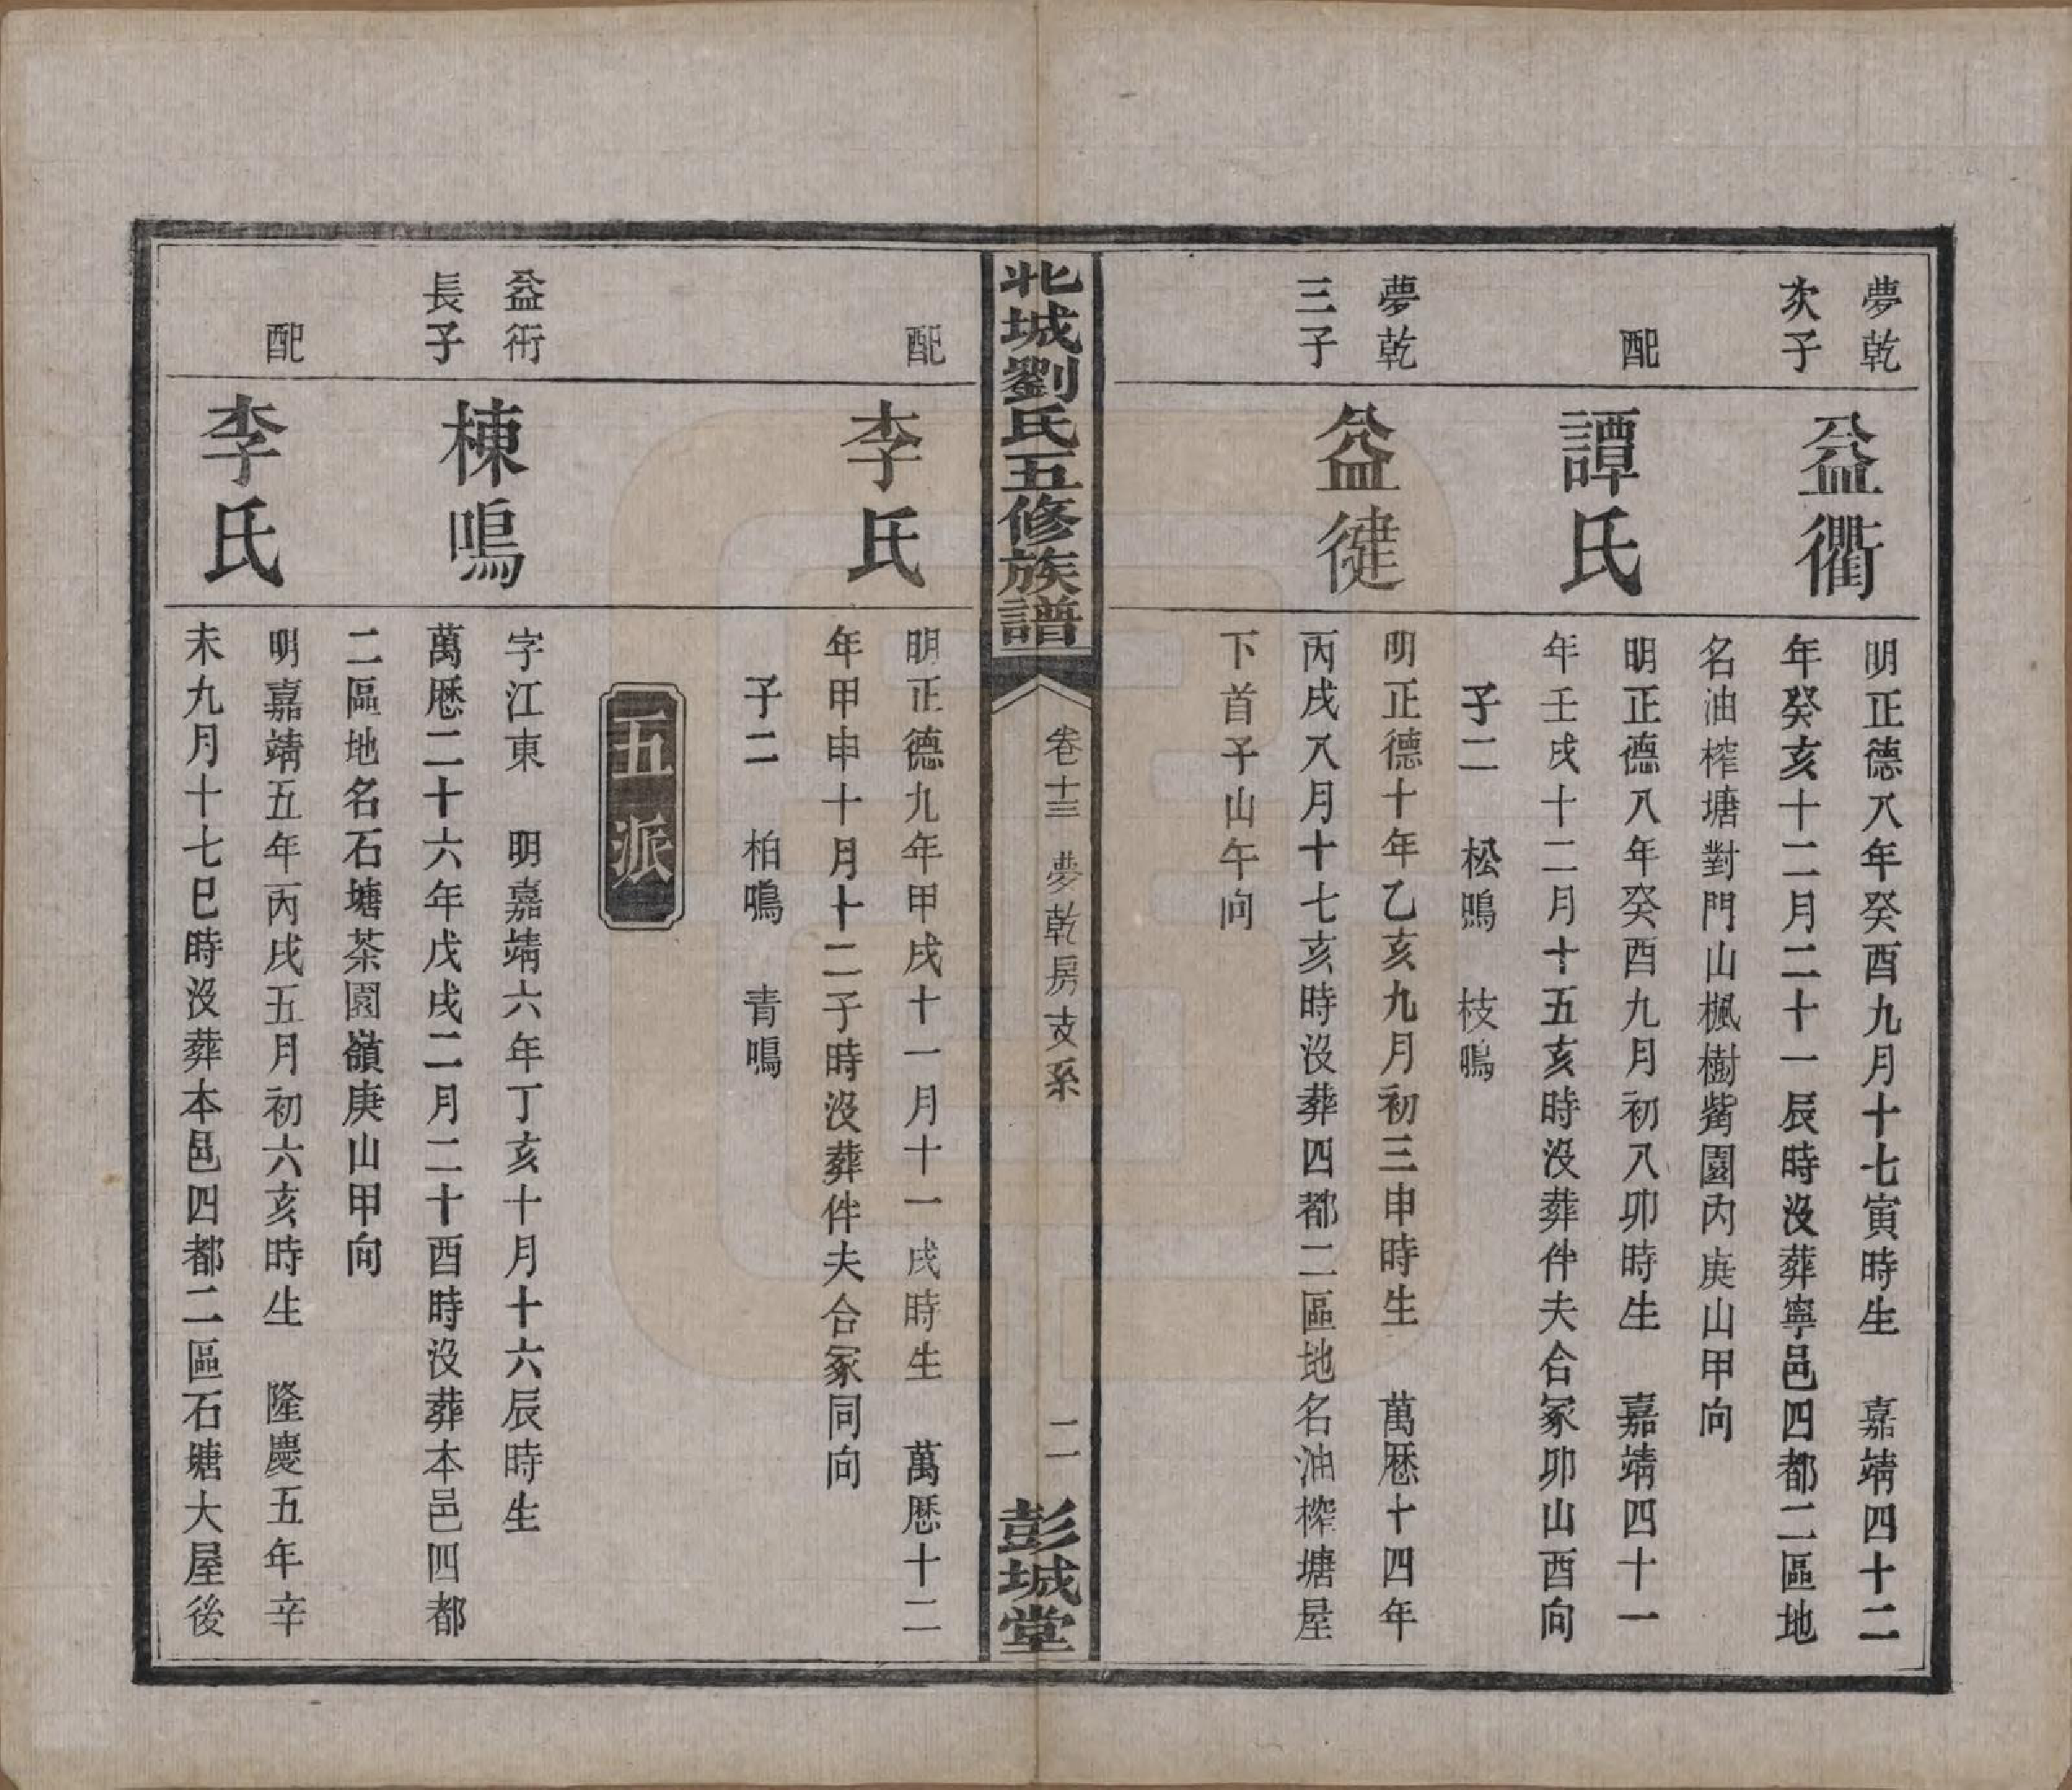 夢乾
次子
益衢
明正德八年癸酉九月十七寅時生　嘉靖四十二
年癸亥十二月二十一辰時沒葬寧邑四都二區地
名油榨塘對門山楓樹觜園內庚山甲向
配
譚氏
明正德八年癸酉九月初八卯時生　嘉靖四十一
年壬戌十二月十五亥時沒葬伴夫合冢卯山酉向
子二　松鳴　枝鳴
夢乾
三子
益徤
明正德十年乙亥九月初三申時生　萬歷十四年
丙戌八月十七亥時沒葬四都二區地名油榨塘屋
下首子山午向
北城劉氏五修族譜
卷十三　夢乾房支系
二
彭城堂
配
李氏
明正德九年甲戌十一月十一戌時生　萬歷十二
年甲申十月十二子時沒葬伴夫合冢同向
子二　柏鳴　青鳴
五派
益衕
長子
棟鳴
字江東　明嘉靖六年丁亥十月十六辰時生
萬歷二十六年戊戌二月二十酉時沒葬本邑四都
二區地名石塘茶園嶺庚山甲向
配
李氏
明嘉靖五年丙戌五月初六亥時生　隆慶五年辛
未九月十七巳時沒葬本邑四都二區石塘大屋後